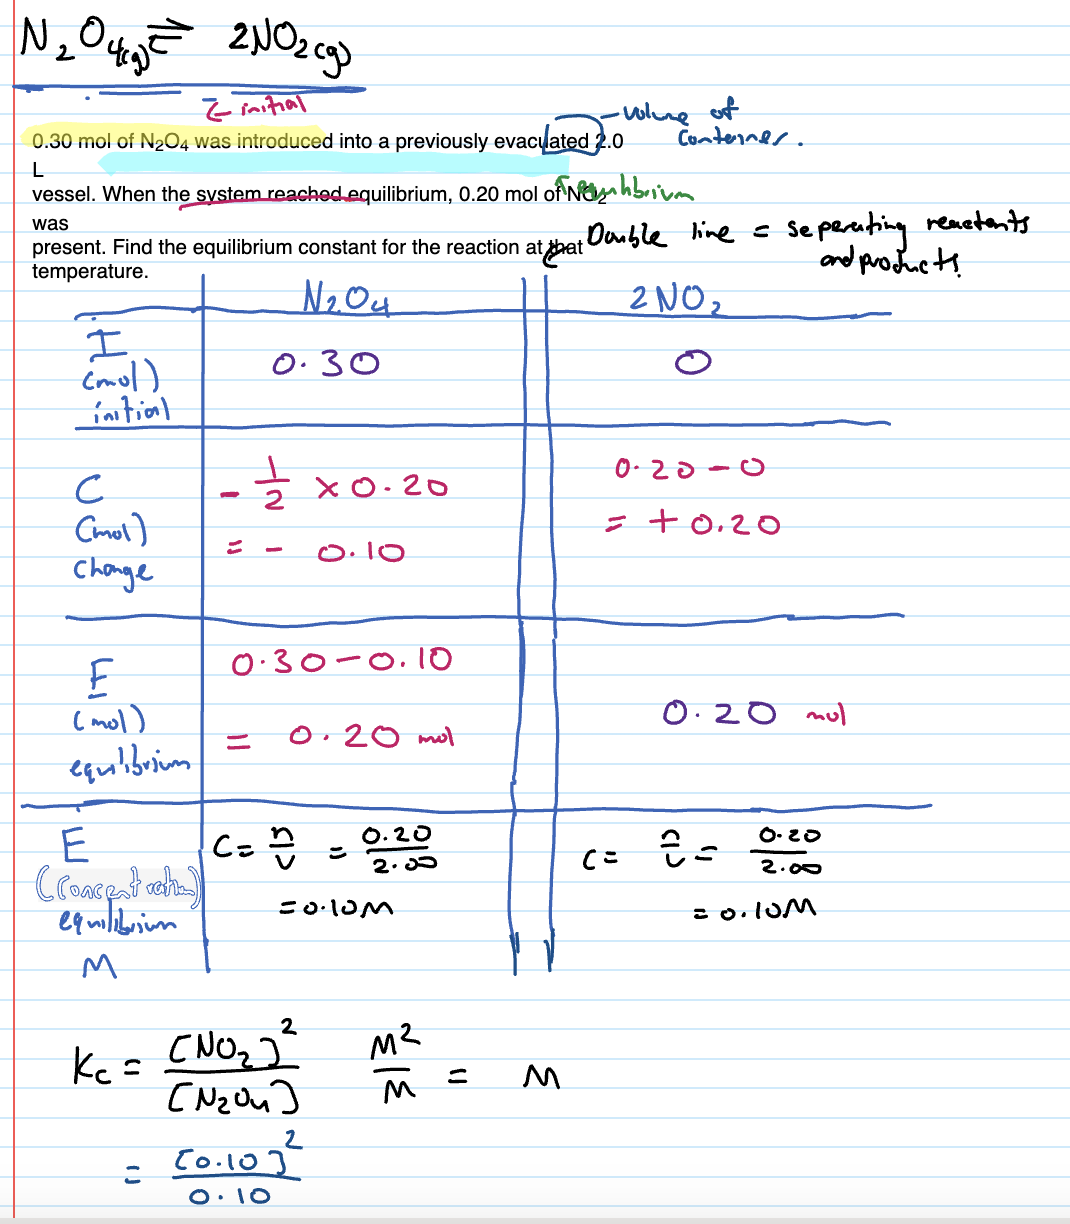 N₂O₄(g) ⇌ 2NO₂(g)
← initial
- volume of
container.
0.30 mol of N₂O₄ was introduced into a previously evacuated 2.0
L
↑ equilibrium
vessel. When the system reached equilibrium, 0.20 mol of NO₂
was
Double line = seperating reactants
and products.
present. Find the equilibrium constant for the reaction at that
temperature.
N₂O₄ 2NO₂
I
(mol)
initial
0.30 0
C
(mol)
change
- 1/2 × 0.20
= - 0.10
0.20 - 0
= + 0.20
E
(mol)
equilibrium
0.30 - 0.10
= 0.20 mol
0.20 mol
E
(Concentration)
equilibrium
M
C = n/v = 0.20/2.00
= 0.10M
C = n/v = 0.20/2.00
= 0.10M
Kc = [NO₂]²/[N₂O₄] M²/M = M
= [0.10]²/0.10